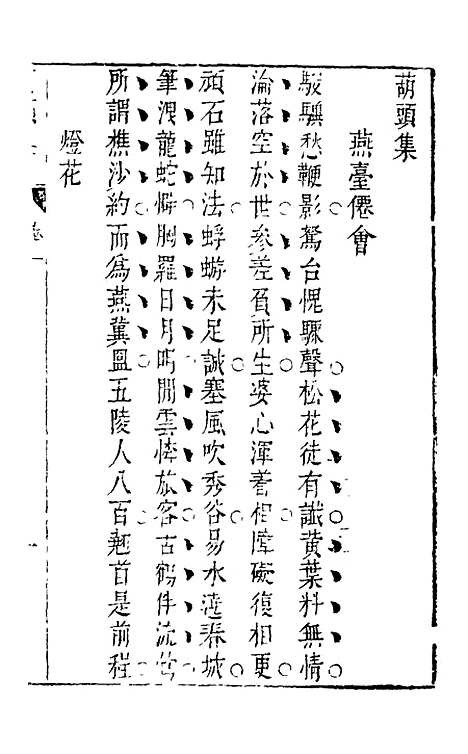 葫頭集
燕臺僊會
駿驥愁鞭影駑台愧驟聲松花徒有讖黄葉料無情
淪落空於世參差負所生婆心渾着相障礙復相更
頑石雖知法蜉蝣未足誠塞風吹秀谷易水漣春城
筆洩龍蛇懈胸羅日月明閒雲悴旅客古鶴伴流
所謂樵沙約而爲燕冀盟五陵人八百翹首是前程
燈花